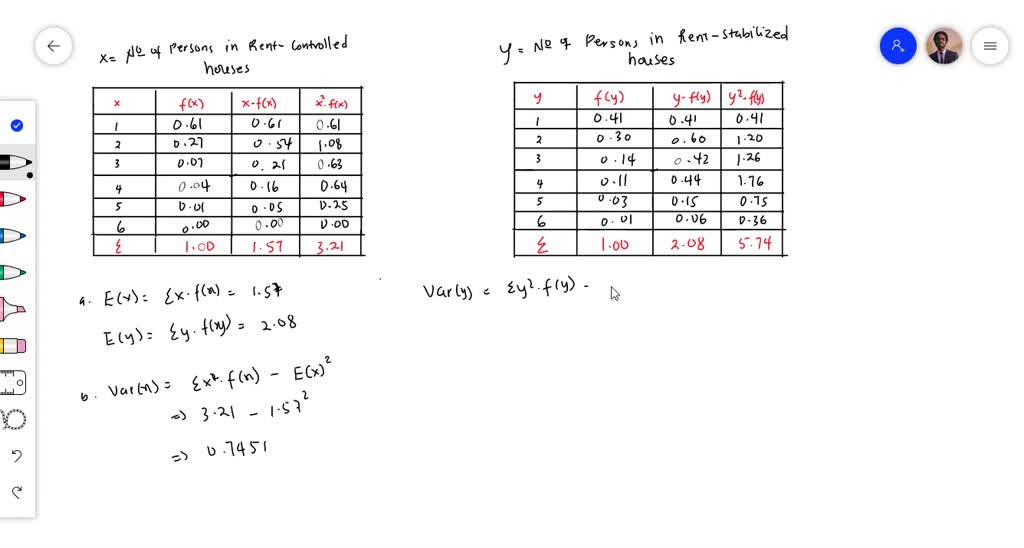 x = No of Persons in Rent-controlled
houses
x f(x) x·f(x) x²·f(x)
1 0.61 0.61 0.61
2 0.27 0.54 1.08
3 0.07 0.21 0.63
4 0.04 0.16 0.64
5 0.01 0.05 0.25
6 0.00 0.00 0.00
Σ 1.00 1.57 3.21
y = No of Persons in Rent-stabilized
houses
y f(y) y·f(y) y²·f(y)
1 0.41 0.41 0.41
2 0.30 0.60 1.20
3 0.14 0.42 1.26
4 0.11 0.44 1.76
5 0.03 0.15 0.75
6 0.01 0.06 0.36
Σ 1.00 2.08 5.74
a. E(x) = Σx·f(x) = 1.57
E(y) = Σy·f(xy) = 2.08
b. Var(x) = Σx²·f(x) - E(x)²
=> 3.21 - 1.57²
=> 0.7451
Var(y) = Σy²·f(y) -